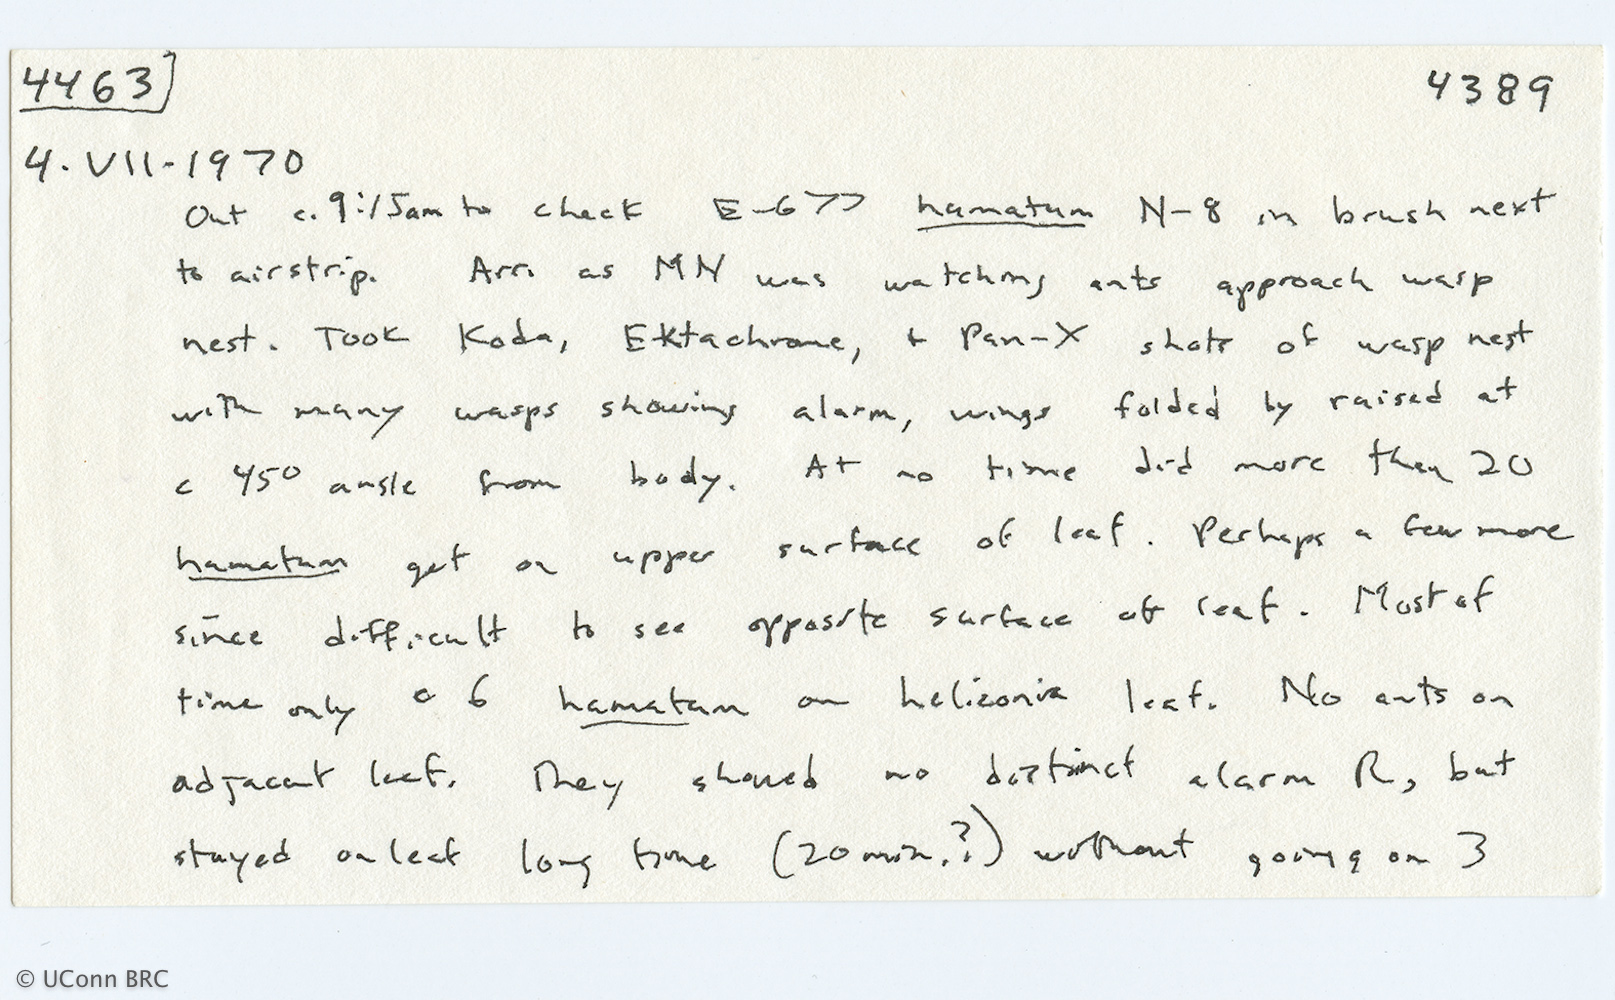 4463 4389
4.VII-1970
Out c. 9:15am to check E-677 hamatum N-8 in brush next
to airstrip. Arr. as MN was watching ants approach wasp
nest. Took Koda, Ektachrome, + Pan-X shots of wasp nest
with many wasps showing alarm, wings folded by raised at
c 45° angle from body. At no time did more than 20
hamatum get on upper surface of leaf. Perhaps a few more
since difficult to see opposite surface of leaf. Most of
time only c 6 hamatum on heliconia leaf. No ants on
adjacent leaf. They showed no distinct alarm R, but
stayed on leaf long time (20 min.?) without going on 3
© UConn BRC